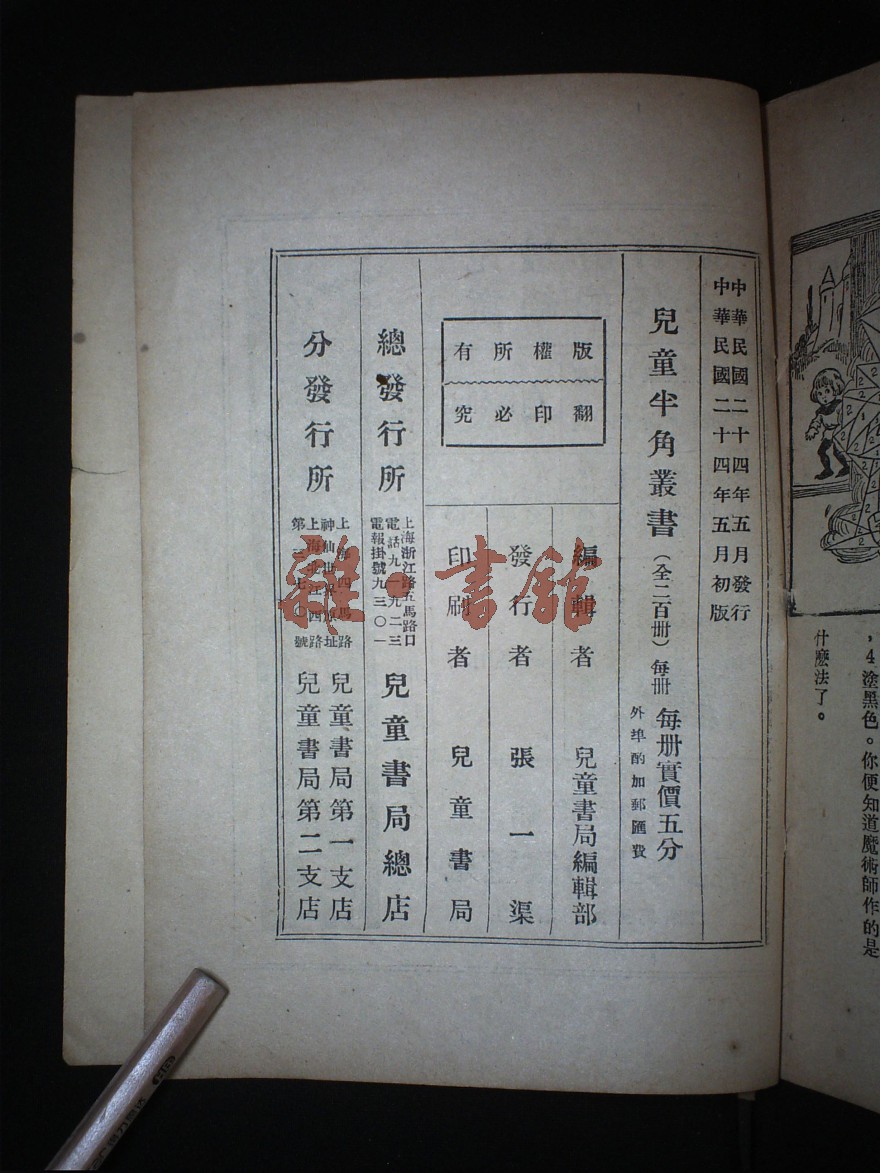 中華民國二十四年五月發行
中華民國二十四年五月初版
兒童半角叢書（全二百册）每册
每册實價五分
外埠酌加郵匯費
版權所有
翻印必究
編輯者 兒童書局編輯部
發行者 張一渠
印刷者 兒童書局
總發行所
上海浙江路五馬路口
電話九一九二三
電報掛號九三〇一
兒童書局總店
分發行所
上海四馬路
兒童書局第一支店
上海北江西路
兒童書局第二支店
雜·書館
，4塗黑色。你便知道魔術師作的是
什麽法了。